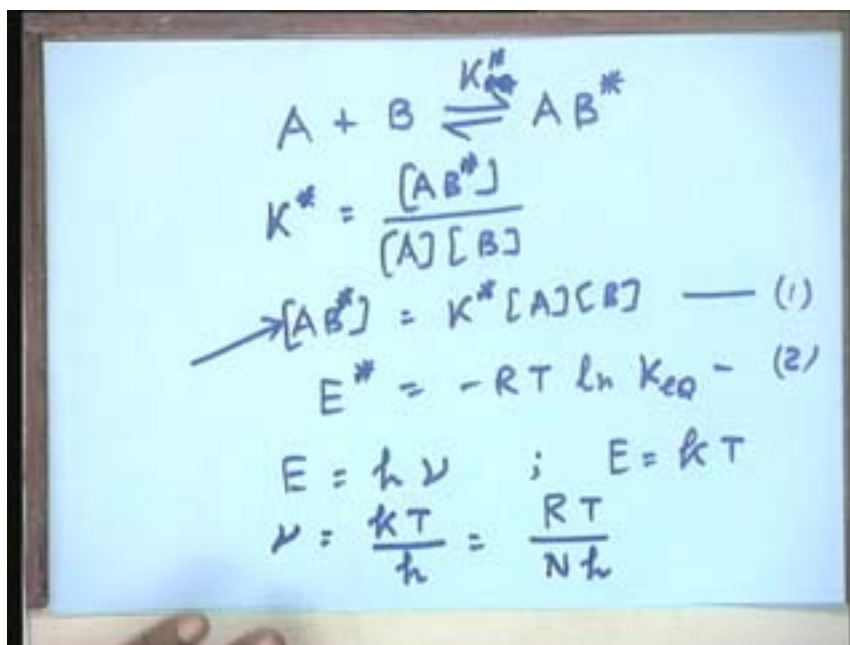 A + B ⇌ AB*
K* = [AB*] / [A][B]
[AB*] = K* [A][B] — (1)
E* = - RT ln Keq - (2)
E = hν ; E = kT
ν = kT / h = RT / Nh